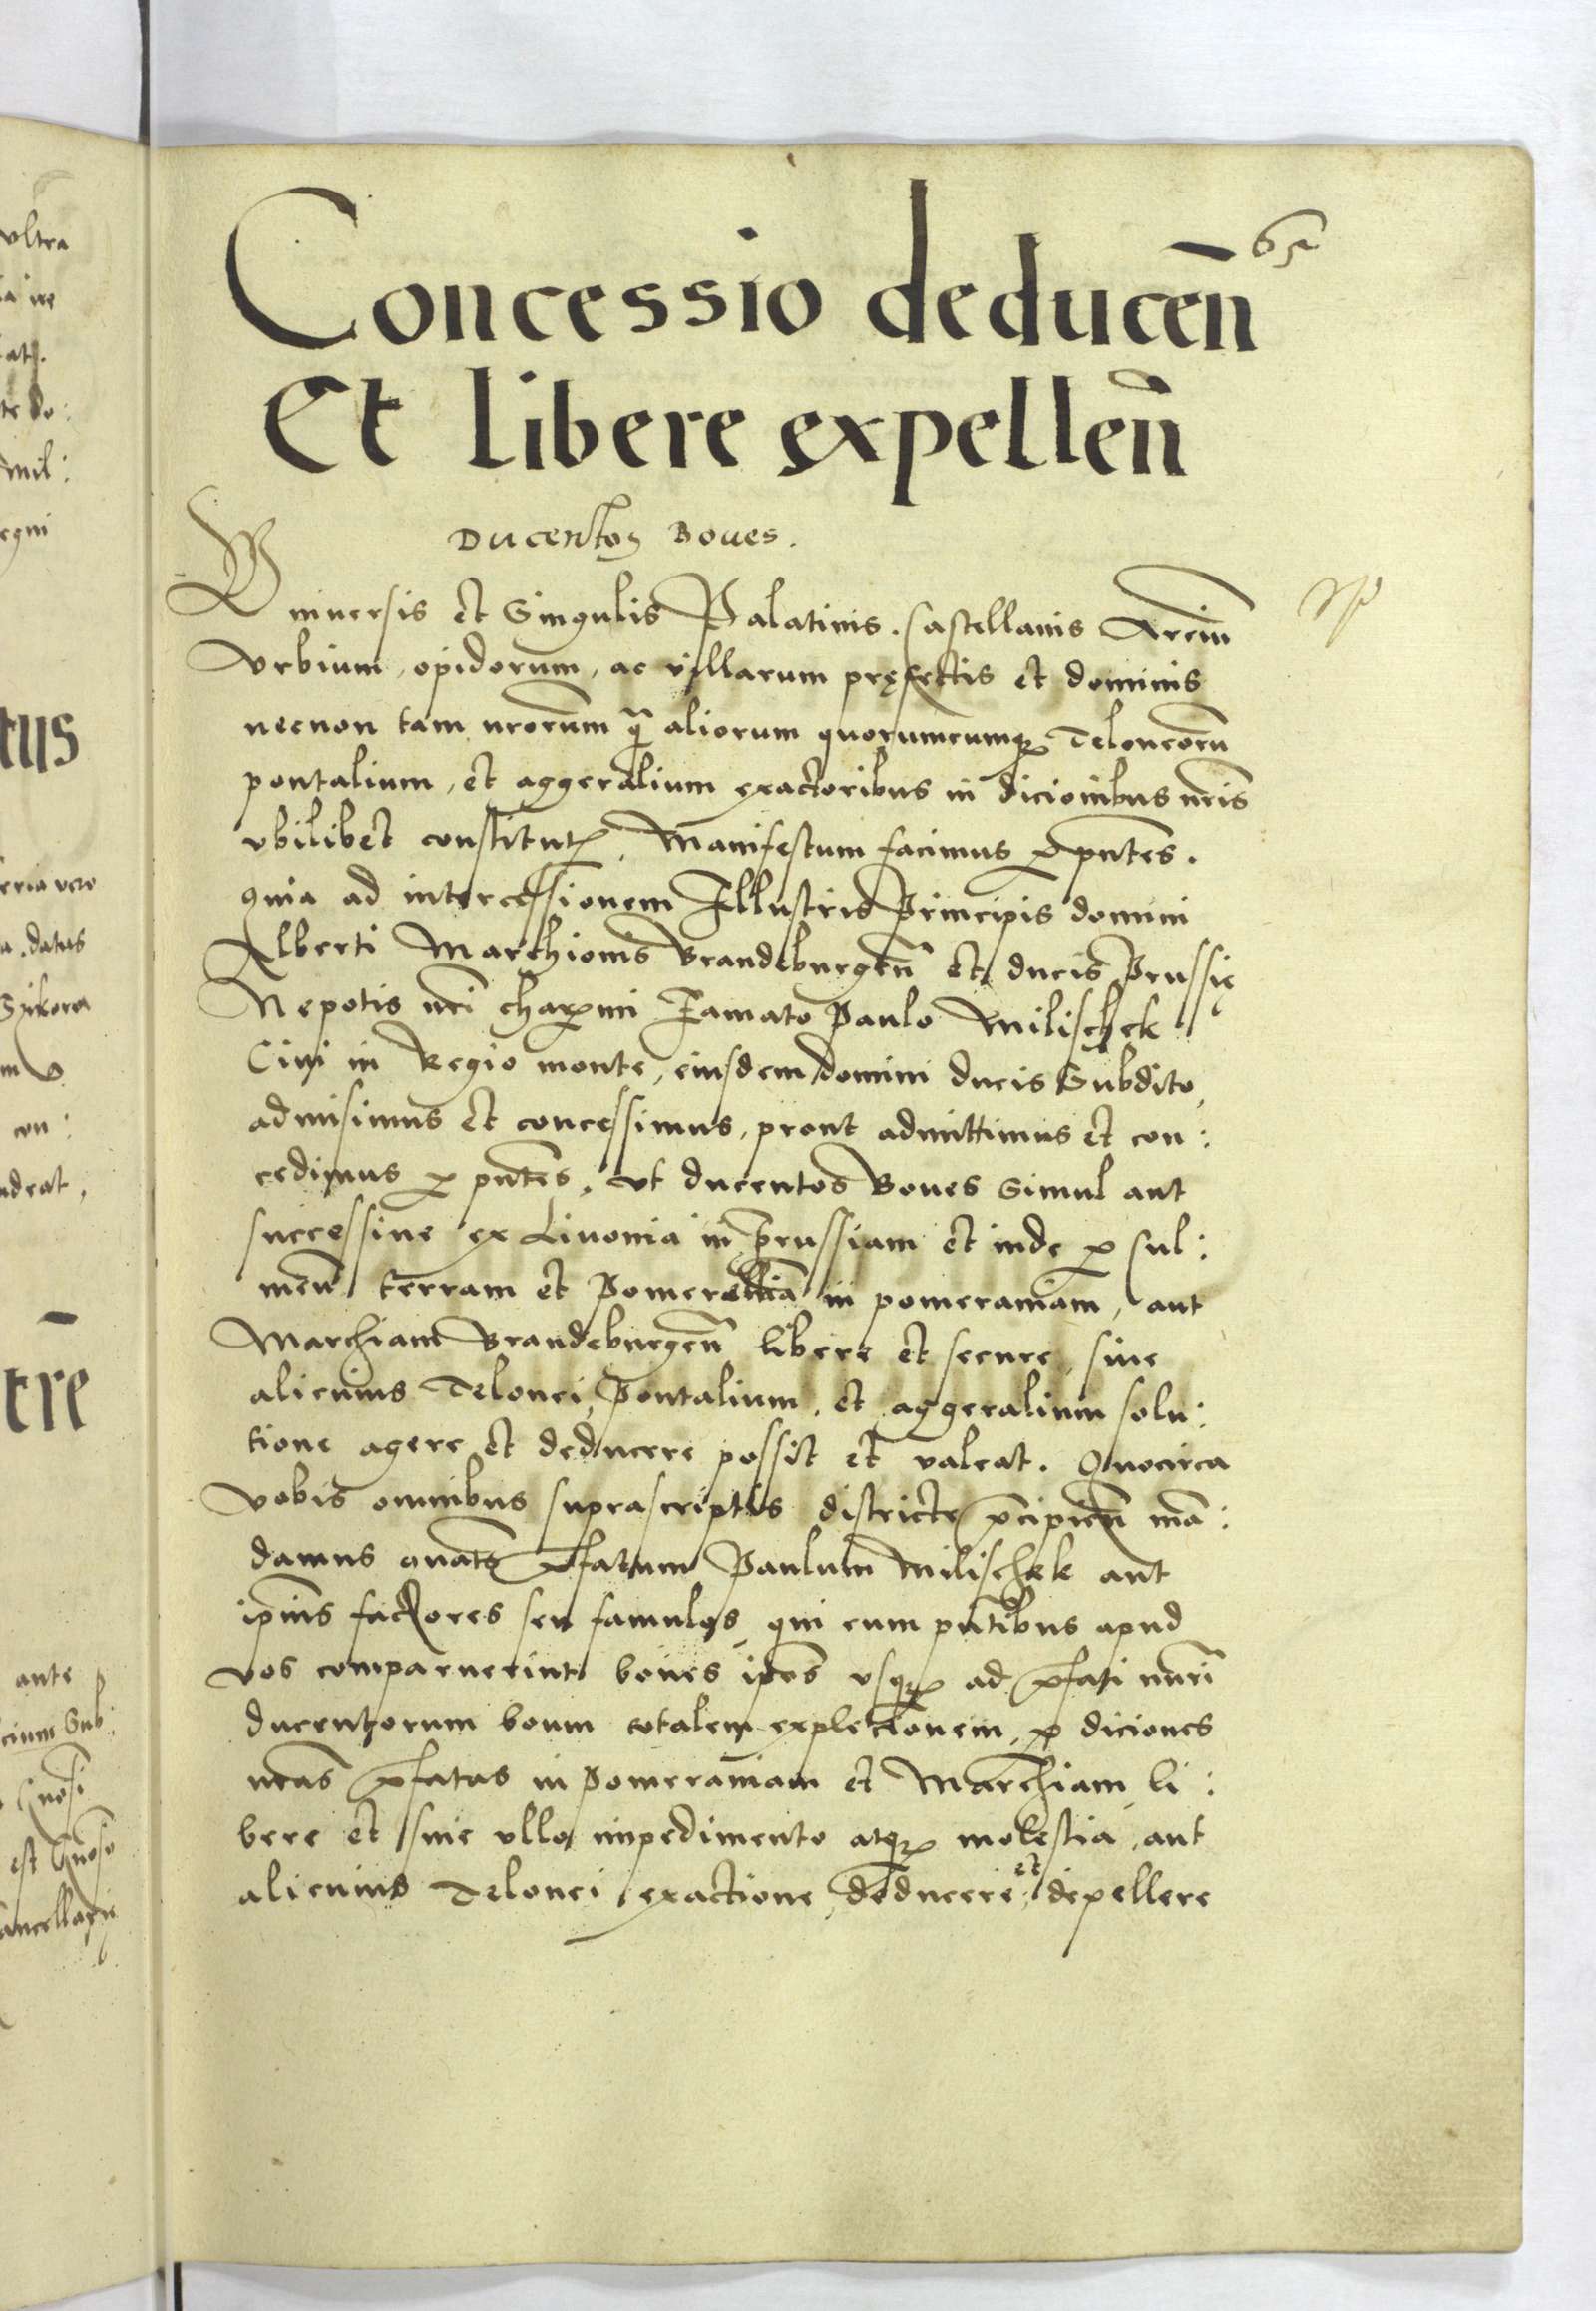 Concessio deducen̄
Et libere expellen̄
Ducentos Boues.
Vniuersis et Singulis Palatinis. Castellanis Arciū
Vrbium, opidorum, ac villarum pręfectis et dominis
necnon tam nrōrum q̄ aliorum quorumcumqꝫ Teloneorū
pontalium, et aggeralium exactoribus in dicionibus nrīs
vbilibet constitutꝭ. Manifestum facimus ꝑ pn̄tes.
quia ad intercessionem Illustris Principis domini
Alberti Marchionis Brandeburgen̄ et ducis Prussię
Nepotis nrī charꝫmi Famato Paulo Milischek
Ciui in Regio monte, eiusdem domini ducis Subdito,
admisimus et concessimus, prout admittimus et con:
cedimus ꝑ pn̄tes, vt ducentos Boues simul aut
successiue ex Liuonia in Prussiam et inde ꝑ Cul:
men̄ terram et Pomerelliā in pomeraniam, aut
Marchiam Brandeburgen̄ libere et secure, sine
alicuius Telonei, Pontalium, et aggeralium solu:
tione agere et deducere possit et valeat. Quocirca
vobis omnibus suprascriptis districte p̄cipien̄ mā:
damus quatꝰ p̄fatum Paulum Milischek aut
ipīus factores seu famulos, qui cum pn̄tibus apud
vos comparuerint boues ipōs vsqꝫ ad p̄fati numīri
ducentorum boum totalem expletionem, ꝑ diciones
nrās p̄fatas in Pomeraniam et Marchiam, li:
bere et sine vllo impedimento atqꝫ molestia, aut
alicuius Telonei exactione, deducere, et depellere